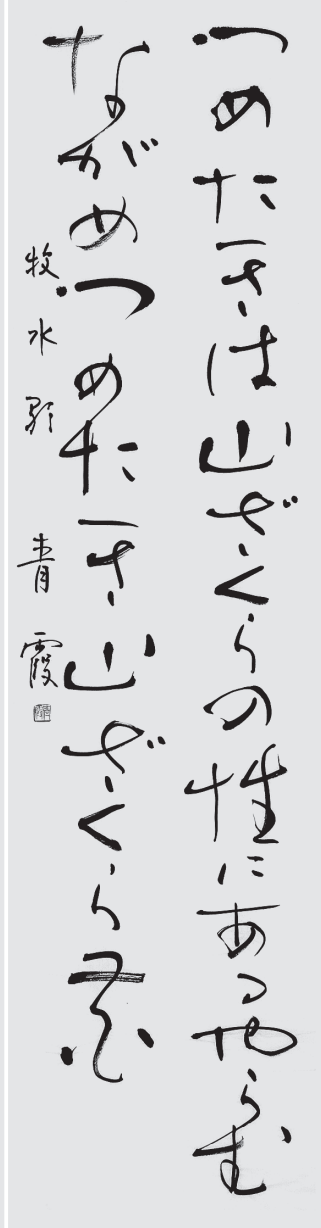 つめたきは山ざくらの性にあるやらむ
ながめつめたき山ざくら花
牧水歌 青霞